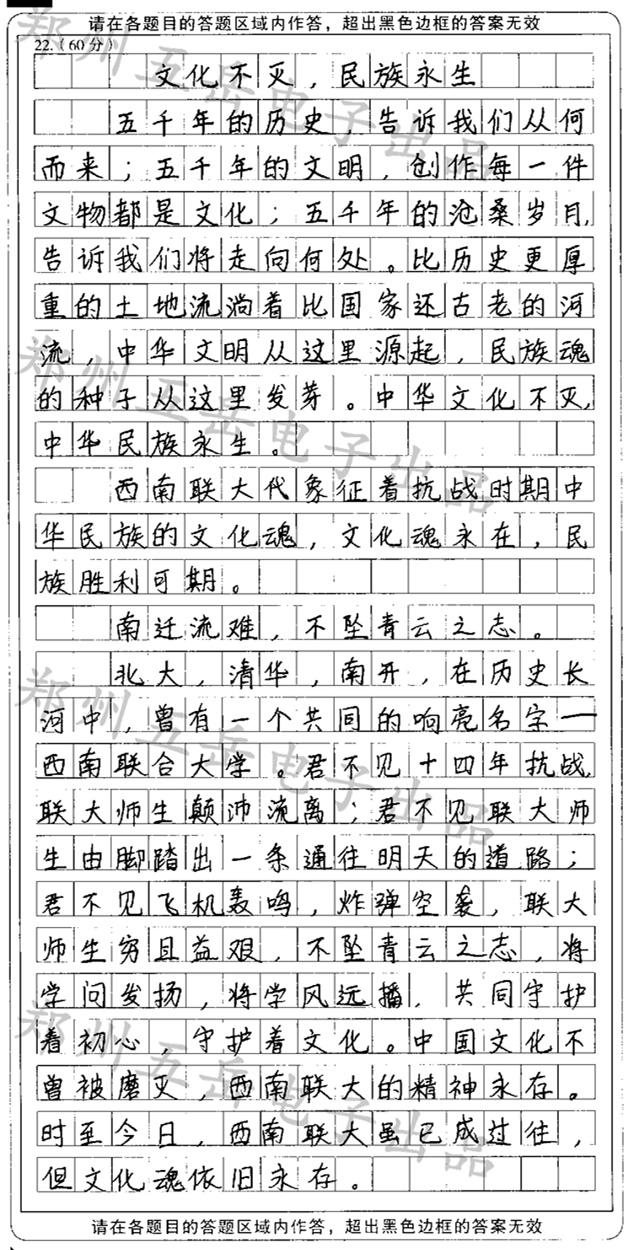 请在各题目的答题区域内作答，超出黑色边框的答案无效
22.（60分）
文化不灭，民族永生
五千年的历史，告诉我们从何
而来；五千年的文明，创作每一件
文物都是文化；五千年的沧桑岁月，
告诉我们将走向何处。比历史更厚
重的土地流淌着比国家还古老的河
流，中华文明从这里源起，民族魂
的种子从这里发芽。中华文化不灭，
中华民族永生。
西南联大代象征着抗战时期中
华民族的文化魂，文化魂永在，民
族胜利可期。
南迁流难，不坠青云之志。
北大，清华，南开，在历史长
河中，曾有一个共同的响亮名字——
西南联合大学。君不见十四年抗战，
联大师生颠沛流离；君不见联大师
生由脚踏出一条通往明天的道路；
君不见飞机轰鸣，炸弹空袭，联大
师生穷且益艰，不坠青云之志，将
学问发扬，将学风远播，共同守护
着初心，守护着文化。中国文化不
曾被磨灭，西南联大的精神永存。
时至今日，西南联大虽已成过往，
但文化魂依旧永存。
请在各题目的答题区域内作答，超出黑色边框的答案无效
郑州五岳电子出品
郑州五岳电子出品
郑州五岳电子出品
郑州五岳电子出品